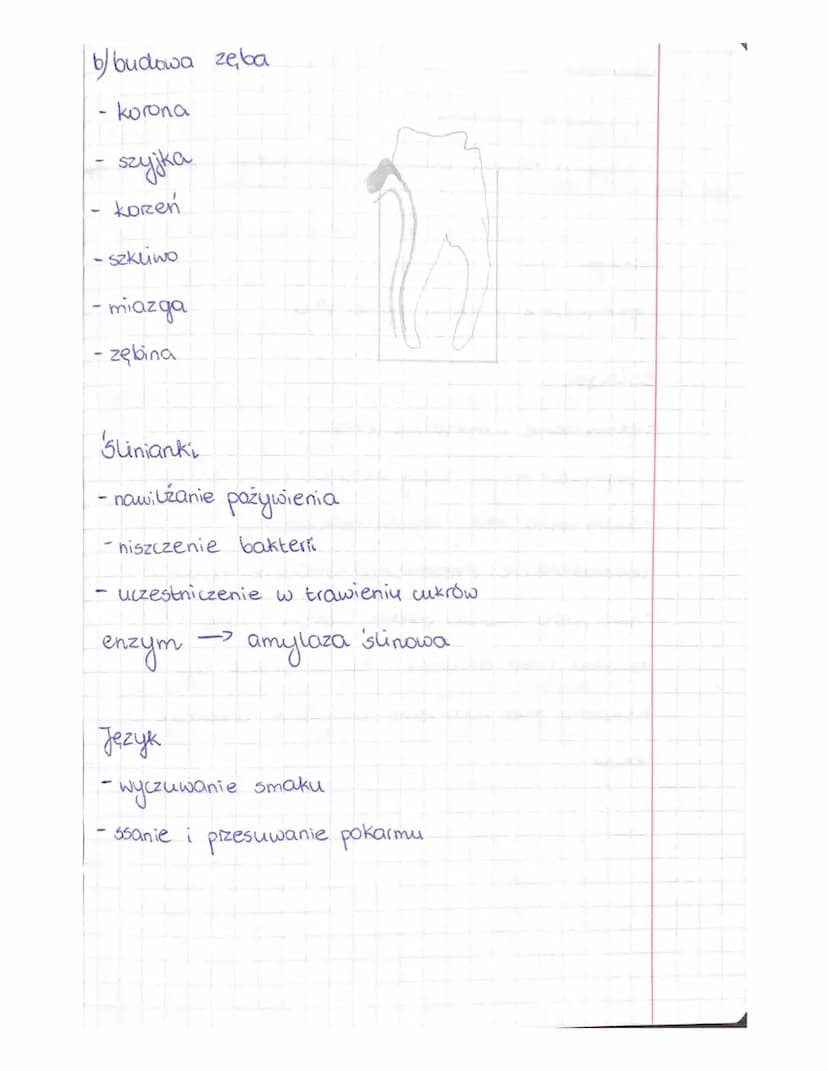 b) budowa zęba
- korona
- szyjka
- korzeń
- szkliwo
- miazga
- zębina
Ślinianki
- nawilżanie pożywienia
- niszczenie bakterii
- uczestniczenie w trawieniu cukrów
enzym → amylaza ślinowa
Język
- wyczuwanie smaku
- ssanie i przesuwanie pokarmu